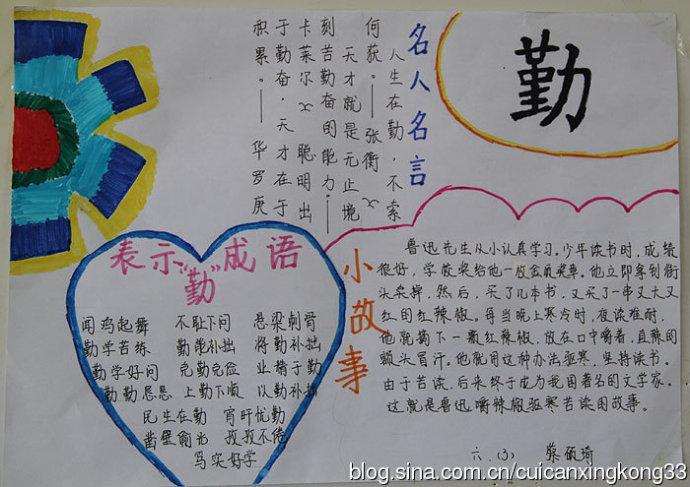 勤
名人名言
人生在勤，不索
何获。——张衡
天才就是无止境
刻苦勤奋的能力——
卡莱尔 聪明出
于勤奋，天才在于
积累。——华罗庚
表示“勤”成语
闻鸡起舞 不耻下问 悬梁刺骨
勤学苦练 勤能补拙 将勤补拙
勤学好问 克勤克俭 业精于勤
勤勤恳恳 上勤下顺 以勤补拙
民生在勤 宵旰忧勤
凿壁偷光 孜孜不倦
笃实好学
小故事
鲁迅先生从小认真学习。少年读书时，成绩
很好，学校奖给他一枚金质奖章。他立即拿到街
头卖掉，然后，买了几本书，又买了一串又大又
红的红辣椒。每当晚上寒冷时，夜读难耐，
他就摘下一颗红辣椒，放在口中嚼着，直辣的
额头冒汗。他就用这种办法驱寒，坚持读书。
由于苦读，后来终于成为我国著名的文学家。
这就是鲁迅嚼辣椒驱寒苦读的故事。
六.(3) 黎硕琦
blog.sina.com.cn/cuicanxingkong33